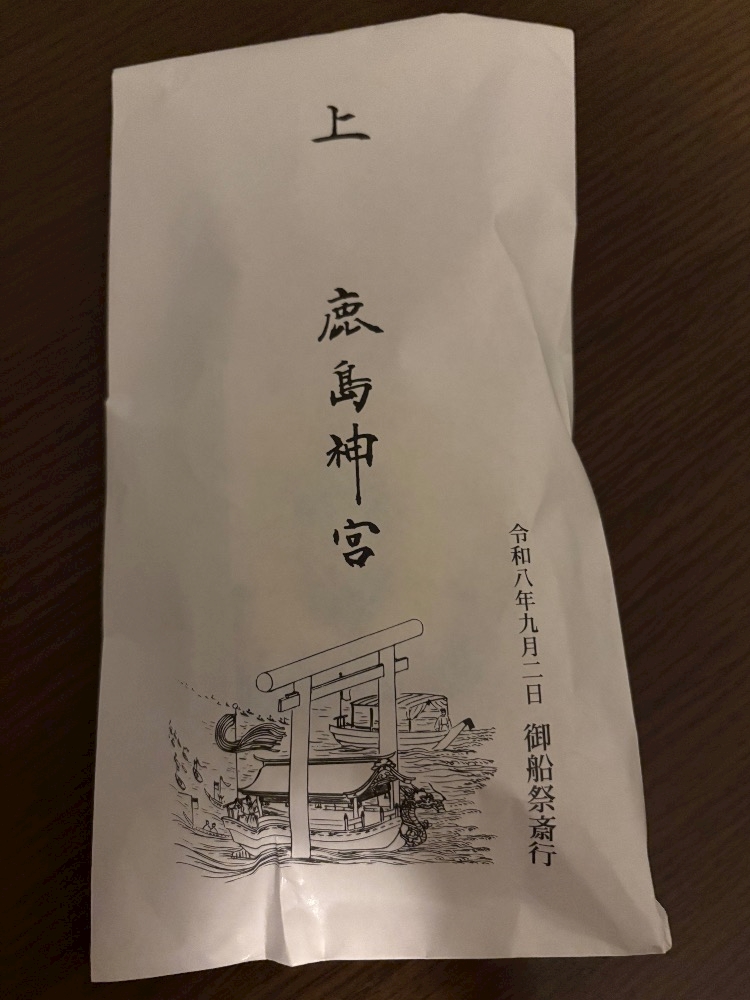 上
鹿島神宮
令和八年九月二日 御船祭斎行